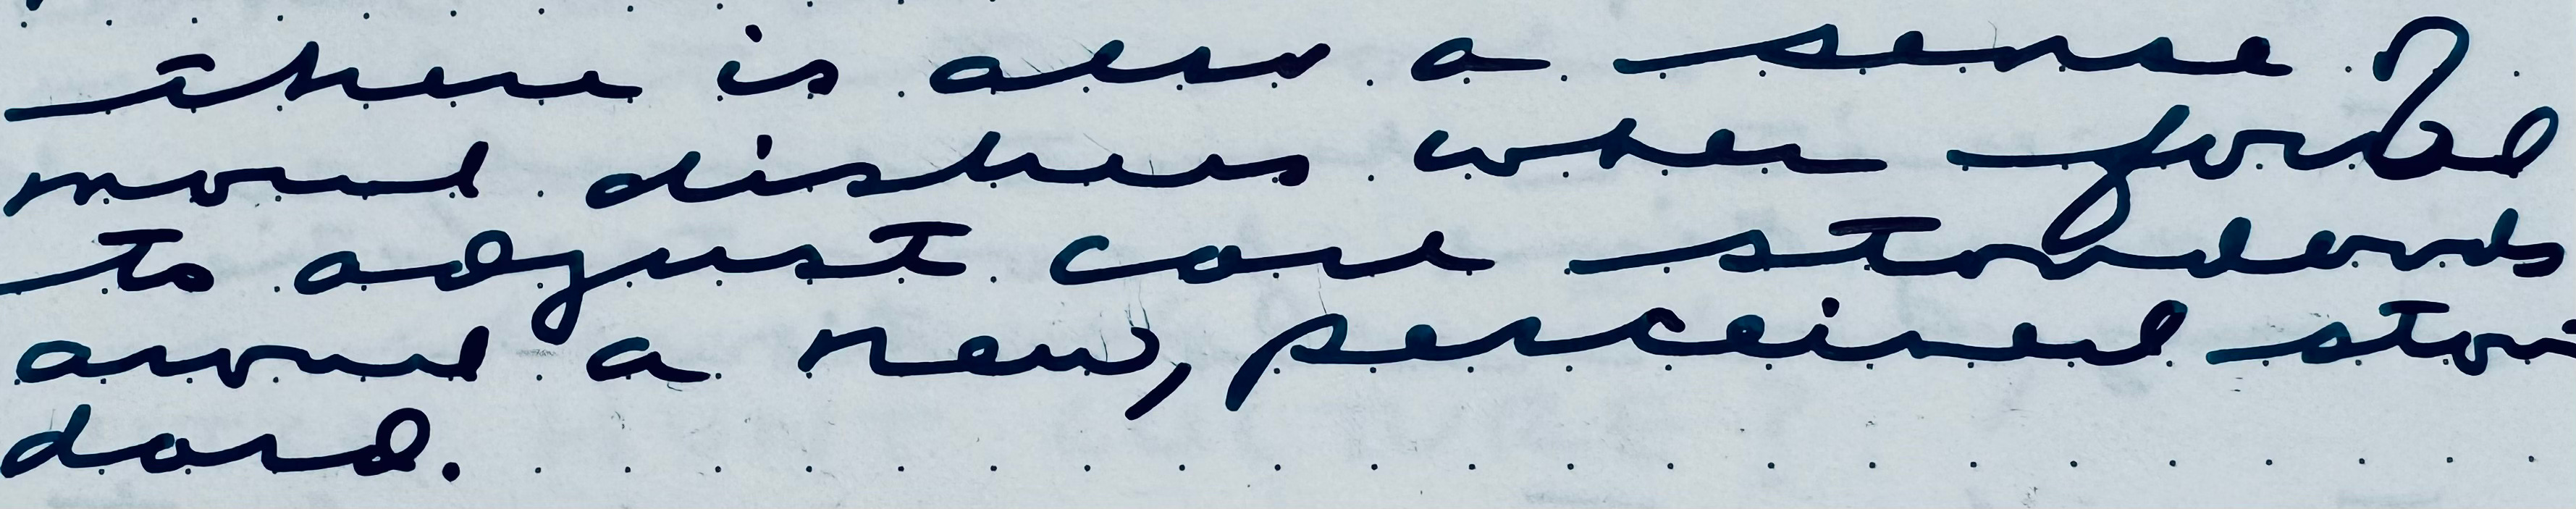 there is also a sense of
moral distress when forced
to adjust care standards
around a new, perceived stan
dard.